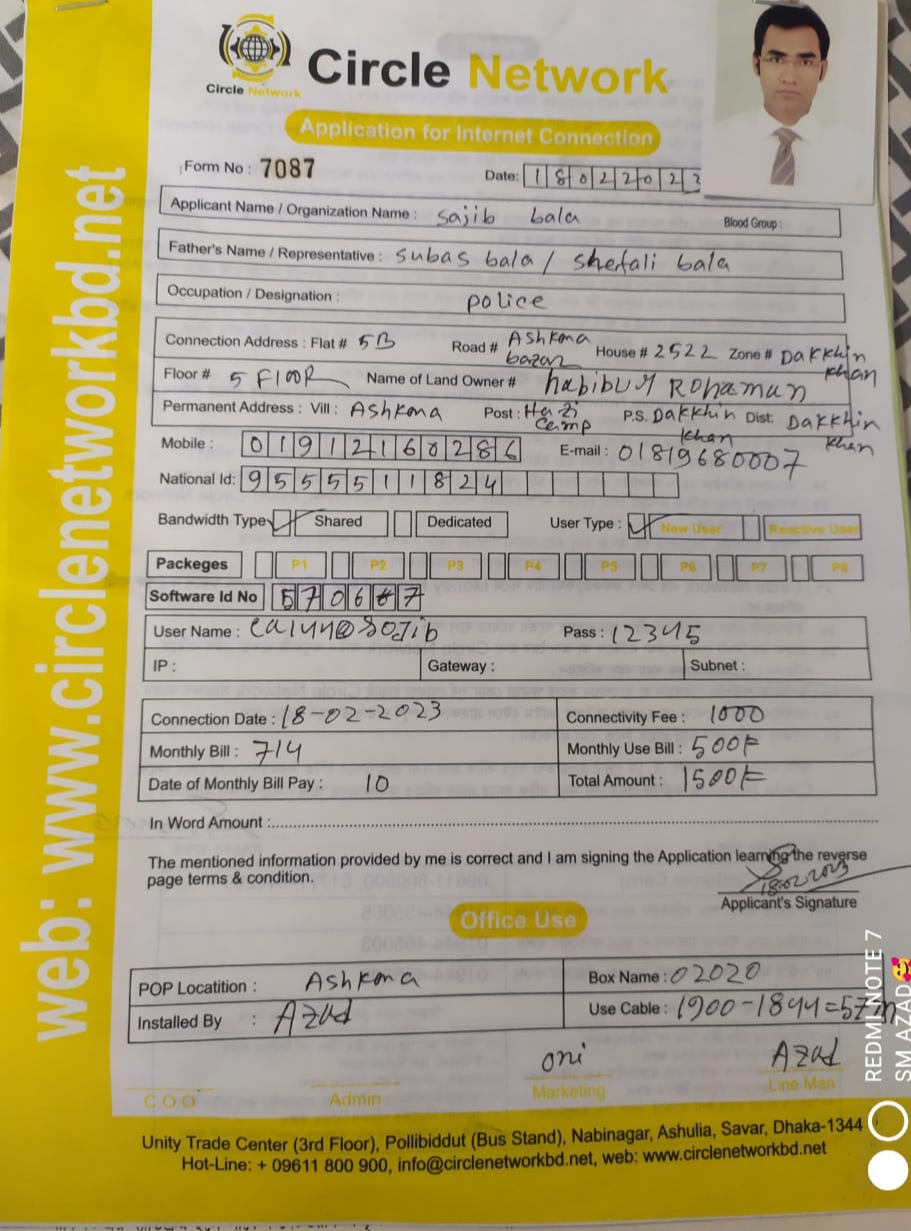 Circle Network
Circle Network
Application for Internet Connection
web: www.circlenetworkbd.net
Form No : 7087
Date: 1802202
Applicant Name / Organization Name : sajib bala Blood Group :
Father's Name / Representative : subas bala / shefali bala
Occupation / Designation : police
Connection Address : Flat # 5B Road # Ashkona bazar House # 2522 Zone # Dakkhin khan
Floor # 5 Floor Name of Land Owner # habibur Rohaman
Permanent Address : Vill : Ashkona Post : Hazi Camp P.S. Dakkhin khan Dist: Dakkhin khan
Mobile : 01912160286 E-mail : 01819680007
National Id: 9555511824
Bandwidth Type Shared Dedicated User Type : New User Reactive User
Packeges P1 P2 P3 P4 P5 P6 P7 P8
Software Id No 570667
User Name : Pass : 12345
IP : Gateway : Subnet :
Connection Date : 18-02-2023 Connectivity Fee : 1000
Monthly Bill : 714 Monthly Use Bill : 500/=
Date of Monthly Bill Pay : 10 Total Amount : 1500/=
In Word Amount :
The mentioned information provided by me is correct and I am signing the Application learning the reverse
page terms & condition.
18-02-2023
Applicant's Signature
Office Use
POP Locatition : Ashkona Box Name : 02020
Installed By : Azad Use Cable : 1900-1844=57m
oni Azad
C.O.O Admin Marketing Line Man
Unity Trade Center (3rd Floor), Pollibiddut (Bus Stand), Nabinagar, Ashulia, Savar, Dhaka-1344
Hot-Line: + 09611 800 900, info@circlenetworkbd.net, web: www.circlenetworkbd.net
REDMI NOTE 7
SM AZAD🥰